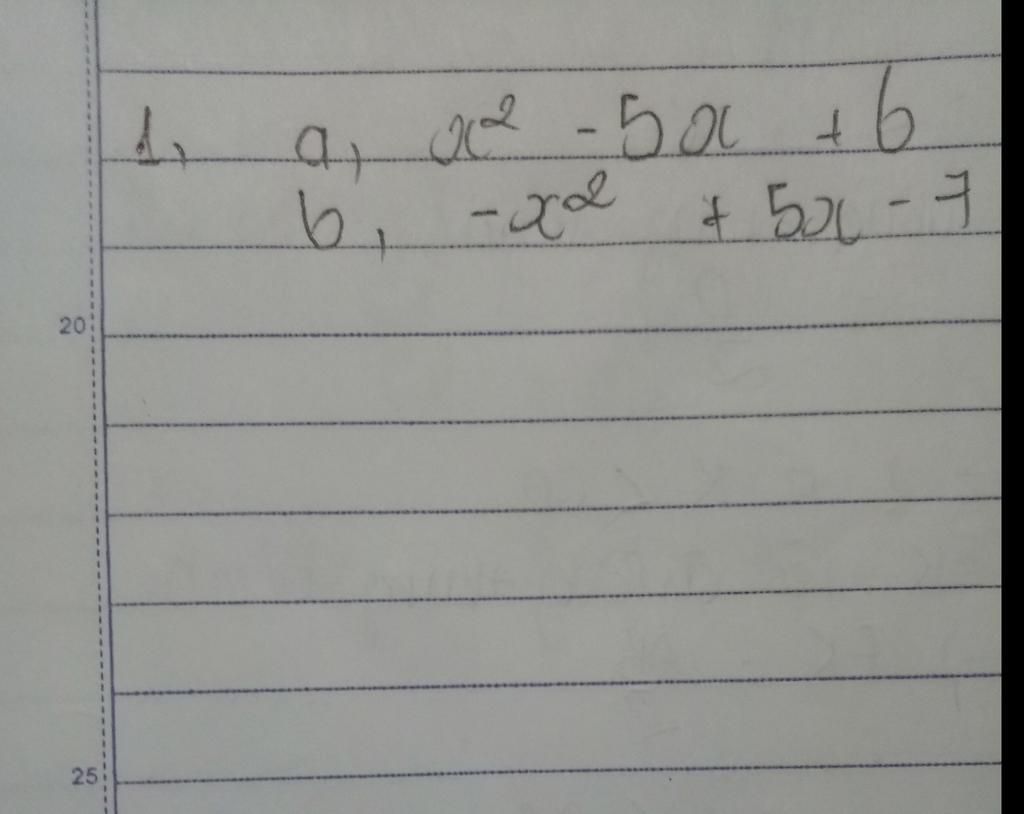 1, a, x² - 5x + 6
b, -x² + 5x - 7
20
25